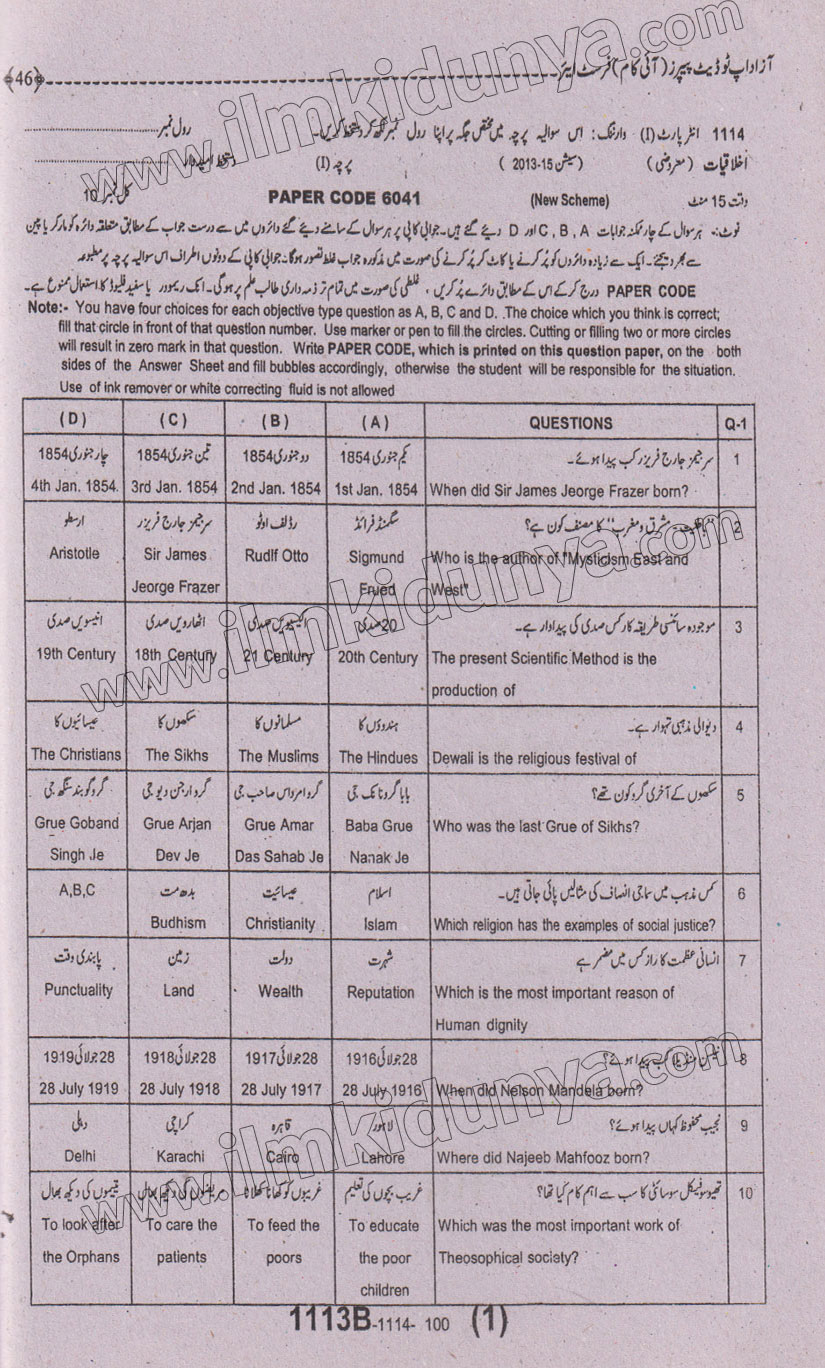 ﴾46﴿ آزاد اپ ٹو ڈیٹ پیپرز (آئی کام) فرسٹ ایئر
1114 انٹر پارٹ (I) وارننگ: اس سوالیہ پرچہ میں مختص جگہ پر اپنا رول نمبر لکھ کر دستخط کریں۔ رول نمبر
اخلاقیات (معروضی) (سیشن 15-2013) پرچہ (I) دستخط امیدوار
وقت 15 منٹ (New Scheme) PAPER CODE 6041 کل نمبر 10
نوٹ:- ہر سوال کے چار ممکنہ جوابات A , B , C اور D دیئے گئے ہیں۔ جوابی کاپی پر ہر سوال کے سامنے دیئے گئے دائروں میں سے درست جواب کے مطابق متعلقہ دائرہ کو مارکر یا پین
سے بھر دیجئے۔ ایک سے زیادہ دائروں کو پُر کرنے یا کاٹ کر پُر کرنے کی صورت میں مذکورہ جواب غلط تصور ہوگا۔ جوابی کاپی کے دونوں اطراف اس سوالیہ پرچہ پر مطبوعہ
PAPER CODE درج کر کے اس کے مطابق دائرے پُر کریں، غلطی کی صورت میں تمام تر ذمہ داری طالب علم پر ہوگی۔ انک ریمور یا سفید فلیوڈ کا استعمال ممنوع ہے۔
Note:- You have four choices for each objective type question as A, B, C and D. .The choice which you think is correct;
fill that circle in front of that question number. Use marker or pen to fill the circles. Cutting or filling two or more circles
will result in zero mark in that question. Write PAPER CODE, which is printed on this question paper, on the both
sides of the Answer Sheet and fill bubbles accordingly, otherwise the student will be responsible for the situation.
Use of ink remover or white correcting fluid is not allowed
(D) (C) (B) (A) QUESTIONS Q-1
چار جنوری 1854 تین جنوری 1854 دو جنوری 1854 یکم جنوری 1854 سر جیمز جارج فریزر کب پیدا ہوئے۔ 1
4th Jan. 1854 3rd Jan. 1854 2nd Jan. 1854 1st Jan. 1854 When did Sir James Jeorge Frazer born?
ارسطو سر جیمز جارج فریزر رڈلف اوٹو سگمنڈ فرائڈ "باطنیت - مشرق و مغرب" کا مصنف کون ہے؟ 2
Aristotle Sir James Rudlf Otto Sigmund Who is the author of "Mysticism East and
Jeorge Frazer Frued West"
انیسویں صدی اٹھارویں صدی اکیسویں صدی 20 صدی موجودہ سائنسی طریقہ کار کس صدی کی پیداوار ہے۔ 3
19th Century 18th Century 21 Century 20th Century The present Scientific Method is the
production of
عیسائیوں کا سکھوں کا مسلمانوں کا ہندوؤں کا دیوالی مذہبی تہوار ہے۔ 4
The Christians The Sikhs The Muslims The Hindues Dewali is the religious festival of
گرو گوبند سنگھ جی گرو ارجن دیو جی گرو امر داس صاحب جی بابا گرو نانک جی سکھوں کے آخری گرو کون تھے؟ 5
Grue Goband Grue Arjan Grue Amar Baba Grue Who was the last Grue of Sikhs?
Singh Je Dev Je Das Sahab Je Nanak Je
A,B,C بدھ مت عیسائیت اسلام کس مذہب میں سماجی انصاف کی مثالیں پائی جاتی ہیں۔ 6
Budhism Christianity Islam Which religion has the examples of social justice?
پابندی وقت زمین دولت شہرت انسانی عظمت کا راز کس میں مضمر ہے 7
Punctuality Land Wealth Reputation Which is the most important reason of
Human dignity
28 جولائی 1919 28 جولائی 1918 28 جولائی 1917 28 جولائی 1916 نیلسن منڈیلا کب پیدا ہوئے؟ 8
28 July 1919 28 July 1918 28 July 1917 28 July 1916 When did Nelson Mandela born?
دہلی کراچی قاہرہ لاہور نجیب محفوظ کہاں پیدا ہوئے؟ 9
Delhi Karachi Cairo Lahore Where did Najeeb Mahfooz born?
یتیموں کی دیکھ بھال مریضوں کی دیکھ بھال غریبوں کو کھانا کھلانا غریب بچوں کی تعلیم تھیوسوفیکل سوسائٹی کا سب سے اہم کام کیا تھا؟ 10
To look after To care the To feed the To educate Which was the most important work of
the Orphans patients poors the poor Theosophical society?
children
1113B-1114- 100 (1)
www.ilmkidunya.com
www.ilmkidunya.com
www.ilmkidunya.com